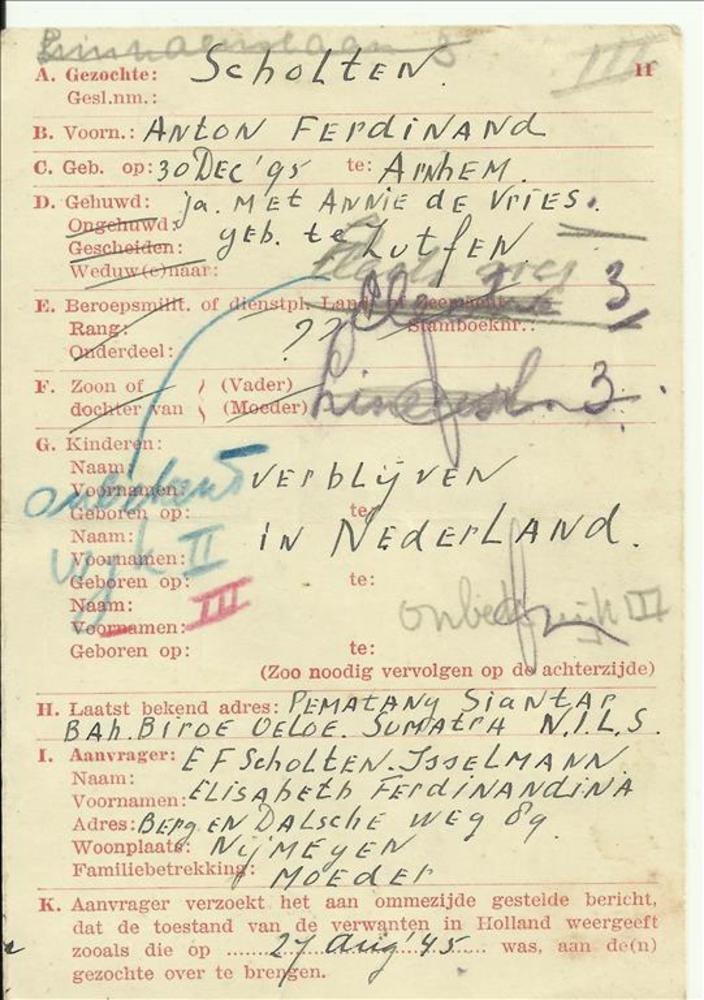 3
III
A. Gezochte: Scholten. II
Gesl.nm.:
B. Voorn.: Anton Ferdinand
C. Geb. op: 30 Dec '95 te: Arnhem.
D. Gehuwd: ja. met Annie de Vries.
Ongehuwd: geb. te Zutfen
Gescheiden:
Weduw(e)naar:
E. Beroepsmilit. of dienstpl. Land- of Zeemacht 3
Rang: ?? Stamboeknr.:
Onderdeel:
F. Zoon of (Vader) 3.
dochter van (Moeder)
G. Kinderen:
Naam: verblijven
onbekend
Voornamen:
Geboren op: te:
Naam: in Nederland.
wijk II
Voornamen:
Geboren op: te:
Naam: III
onbek wijk III
Voornamen:
Geboren op: te:
(Zoo noodig vervolgen op de achterzijde)
H. Laatst bekend adres: Pematang Siantar
Bah. Biroe Oeloe. Sumatra N.I.L.S.
I. Aanvrager: E F Scholten-Ysselmann
Naam:
Voornamen: Elisabeth Ferdinandina
Adres: Berg en Dalsche weg 89
Woonplaats: Nijmegen
Familiebetrekking: Moeder
K. Aanvrager verzoekt het aan ommezijde gestelde bericht,
dat de toestand van de verwanten in Holland weergeeft
zooals die op 27 Aug '45 was, aan de(n)
gezochte over te brengen.